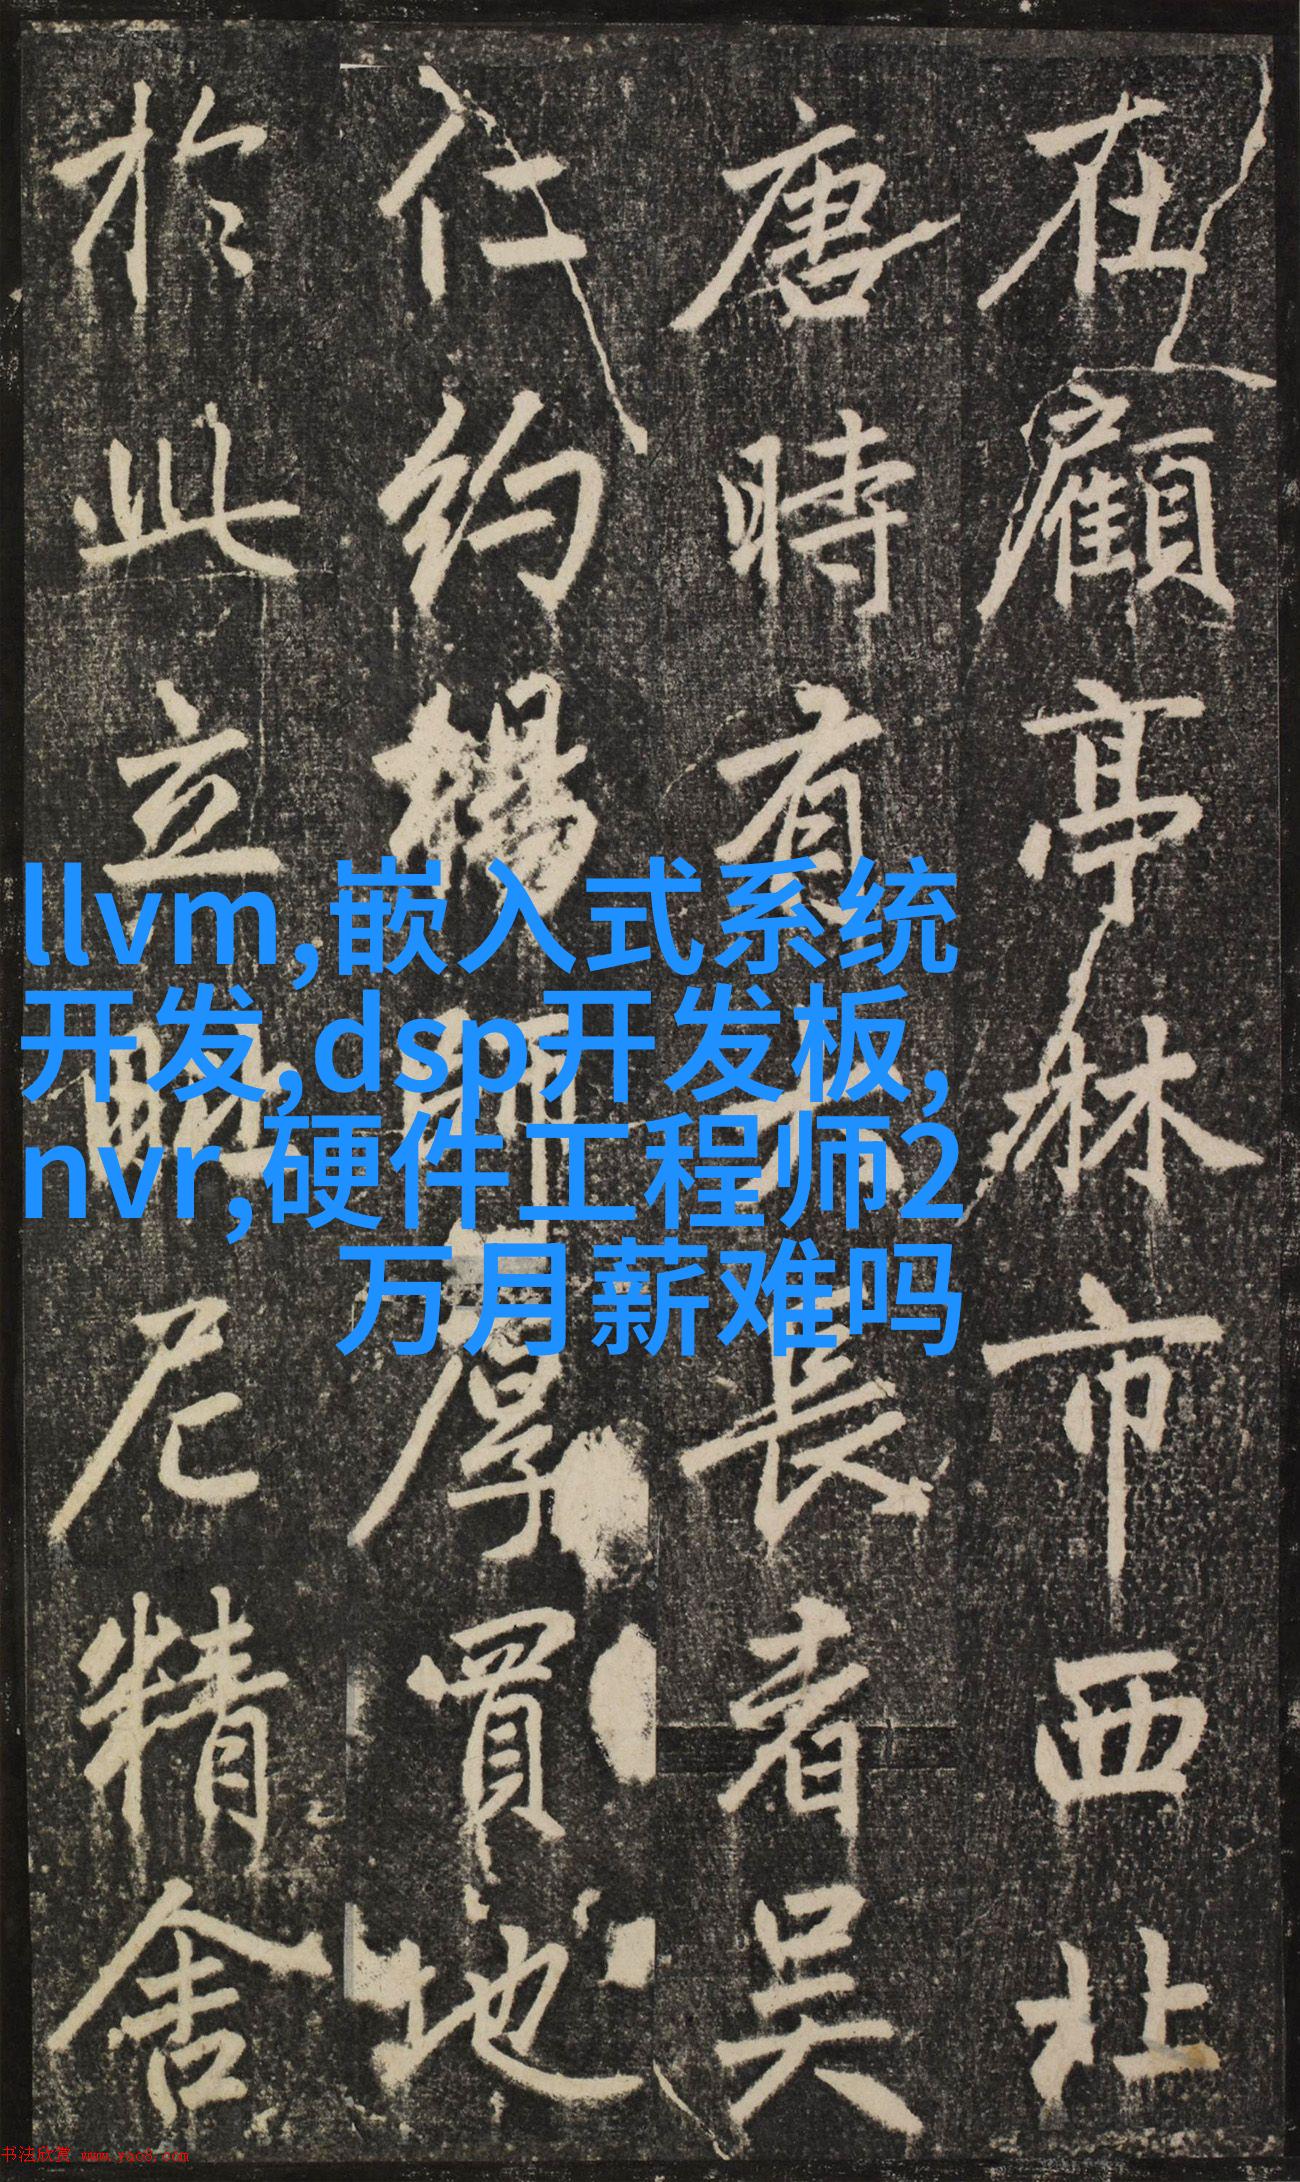 在顧亭林市西北
唐時有大長者吳
仁約楊師厚買地
於此立毗尼精舍
llvm,嵌入式系统
开发,dsp开发板,
nvr,硬件工程师2
万月薪难吗
书法欣赏 www.yac8.com